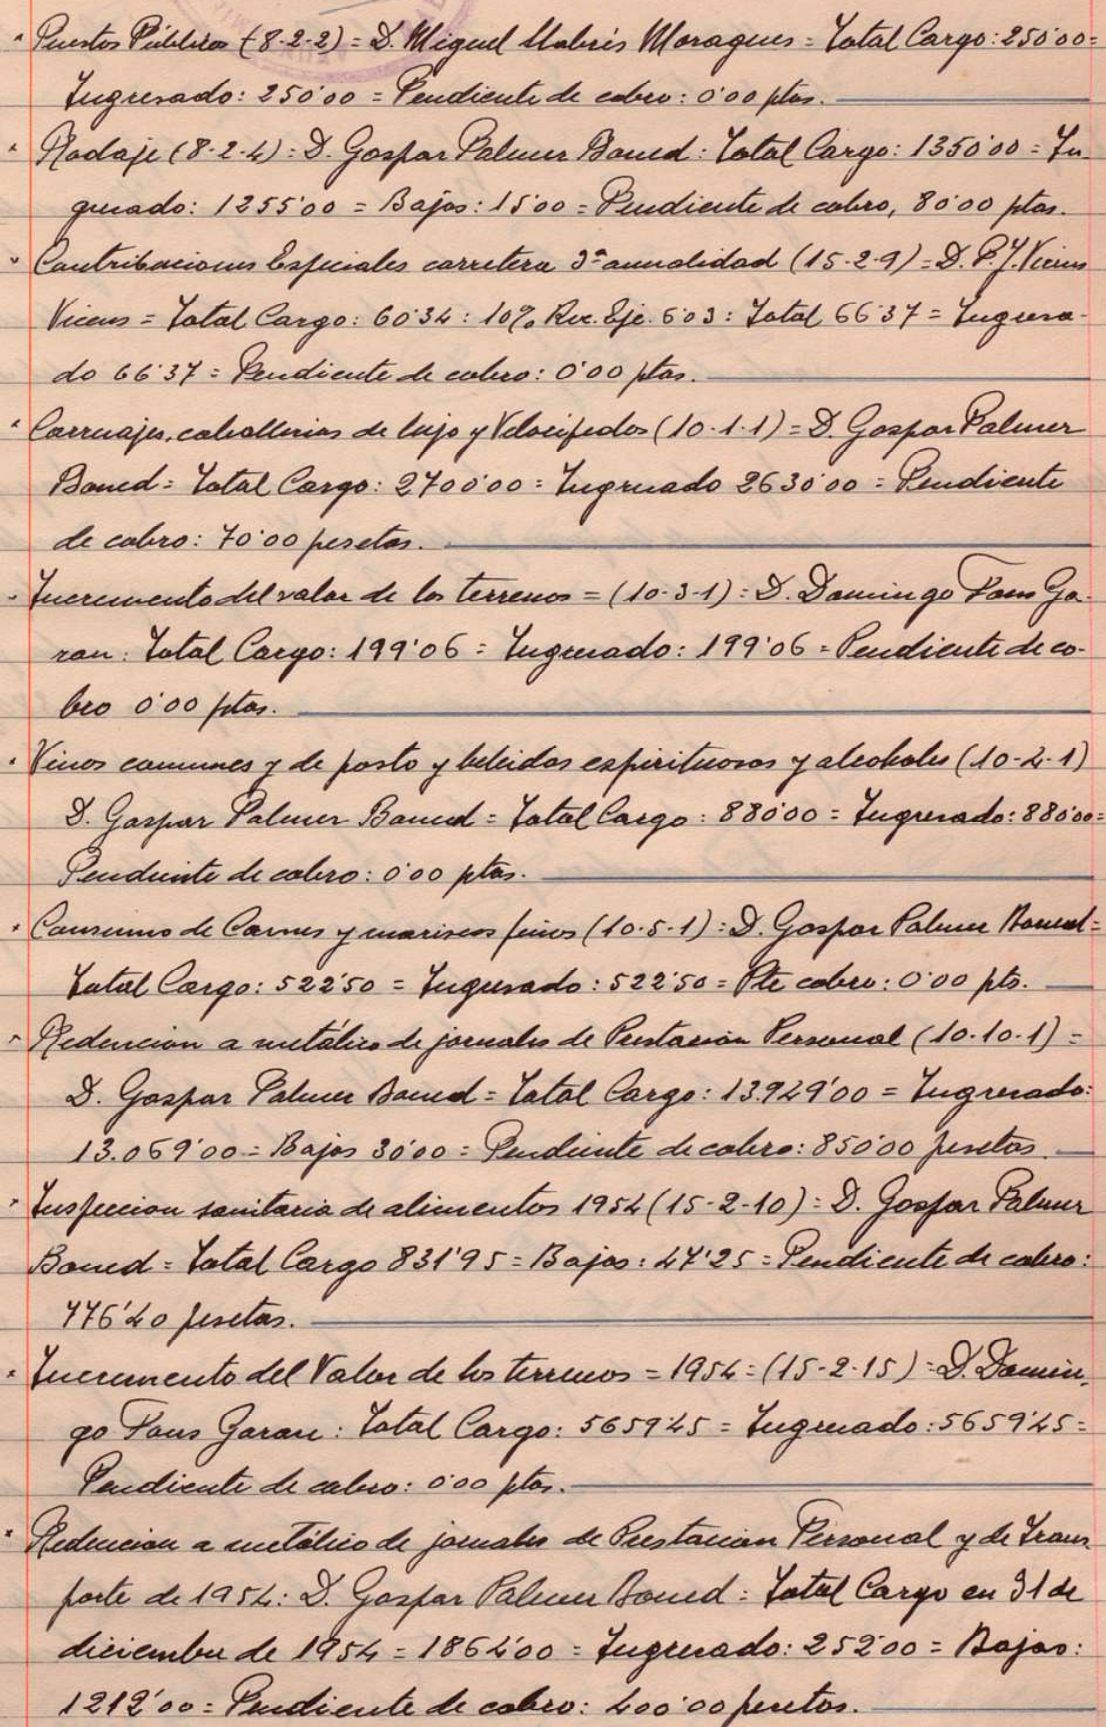 " Puestos Públicos (8-2-2) = D. Miguel Llabrés Moragues = Total Cargo: 250'00 =
Ingresado: 250'00 = Pendiente de cobro: 0'00 ptas.
" Rodaje (8-2-4): D. Gaspar Palmer Boned: Total Cargo: 1350'00 = In-
gresado: 1255'00 = Bajas: 15'00 = Pendiente de cobro, 80'00 ptas.
" Contribuciones Especiales carretera 3ª anualidad (15-2-9) = D. P. J. Vicens
Vicens = Total Cargo: 60'34 : 10% Rec. Eje. 6'03 : Total 66'37 = Ingresa-
do 66'37 = Pendiente de cobro: 0'00 ptas.
" Carruajes, caballerias de lujo y Velocipedos (10-1-1) = D. Gaspar Palmer
Boned = Total Cargo: 2700'00 = Ingresado 2630'00 = Pendiente
de cobro: 70'00 pesetas.
" Incremento del valor de los terrenos = (10-3-1): D. Domingo Pons Ga-
rau: Total Cargo: 199'06 = Ingresado: 199'06 = Pendiente de co-
bro 0'00 ptas.
" Vinos comunes y de pasto y bebidas espirituosas y alcoholes (10-4-1)
D. Gaspar Palmer Boned = Total Cargo: 880'00 = Ingresado: 880'00 =
Pendiente de cobro: 0'00 ptas.
" Consumo de Carnes y mariscos finos (10-5-1): D. Gaspar Palmer Boned =
Total Cargo: 522'50 = Ingresado: 522'50 = Pte cobro: 0'00 pts.
" Redencion a metálico de jornales de Prestación Personal (10-10-1) =
D. Gaspar Palmer Boned = Total Cargo: 13.949'00 = Ingresado:
13.069'00 = Bajas 30'00 = Pendiente de cobro: 850'00 pesetas.
" Inspeccion sanitaria de alimentos 1954 (15-2-10): D. Gaspar Palmer
Boned = Total Cargo 831'95 = Bajas: 47'25 = Pendiente de cobro:
776'40 pesetas.
" Incremento del Valor de los terrenos = 1954 = (15-2-15) = D. Domin-
go Pons Garau: Total Cargo: 5659'45 = Ingresado: 5659'45 =
Pendiente de cobro: 0'00 ptas.
" Redencion a metálico de jornales de Prestacion Personal y de Trans
porte de 1954: D. Gaspar Palmer Boned = Total Cargo en 31 de
diciembre de 1954 = 1864'00 = Ingresado: 252'00 = Bajas:
1212'00 = Pendiente de cobro: 400'00 pesetas.